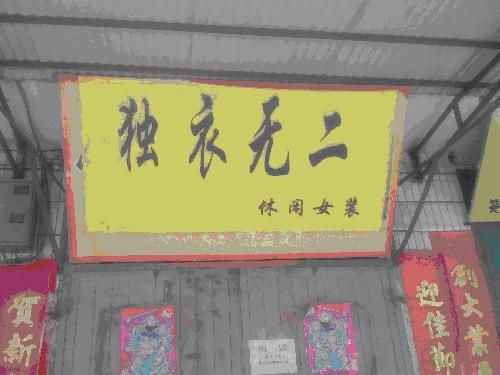 独衣无二
休闲女装
贺新
迎佳
创大业